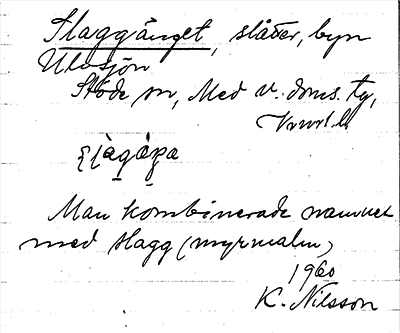 Slaggänget, slåtter, byn
Ulvsjön
Stöde sn, Med v. doms. tg,
Vnrl.
Man kombinerade namnet
med slagg (myrmalm)
1960
K. Nilsson